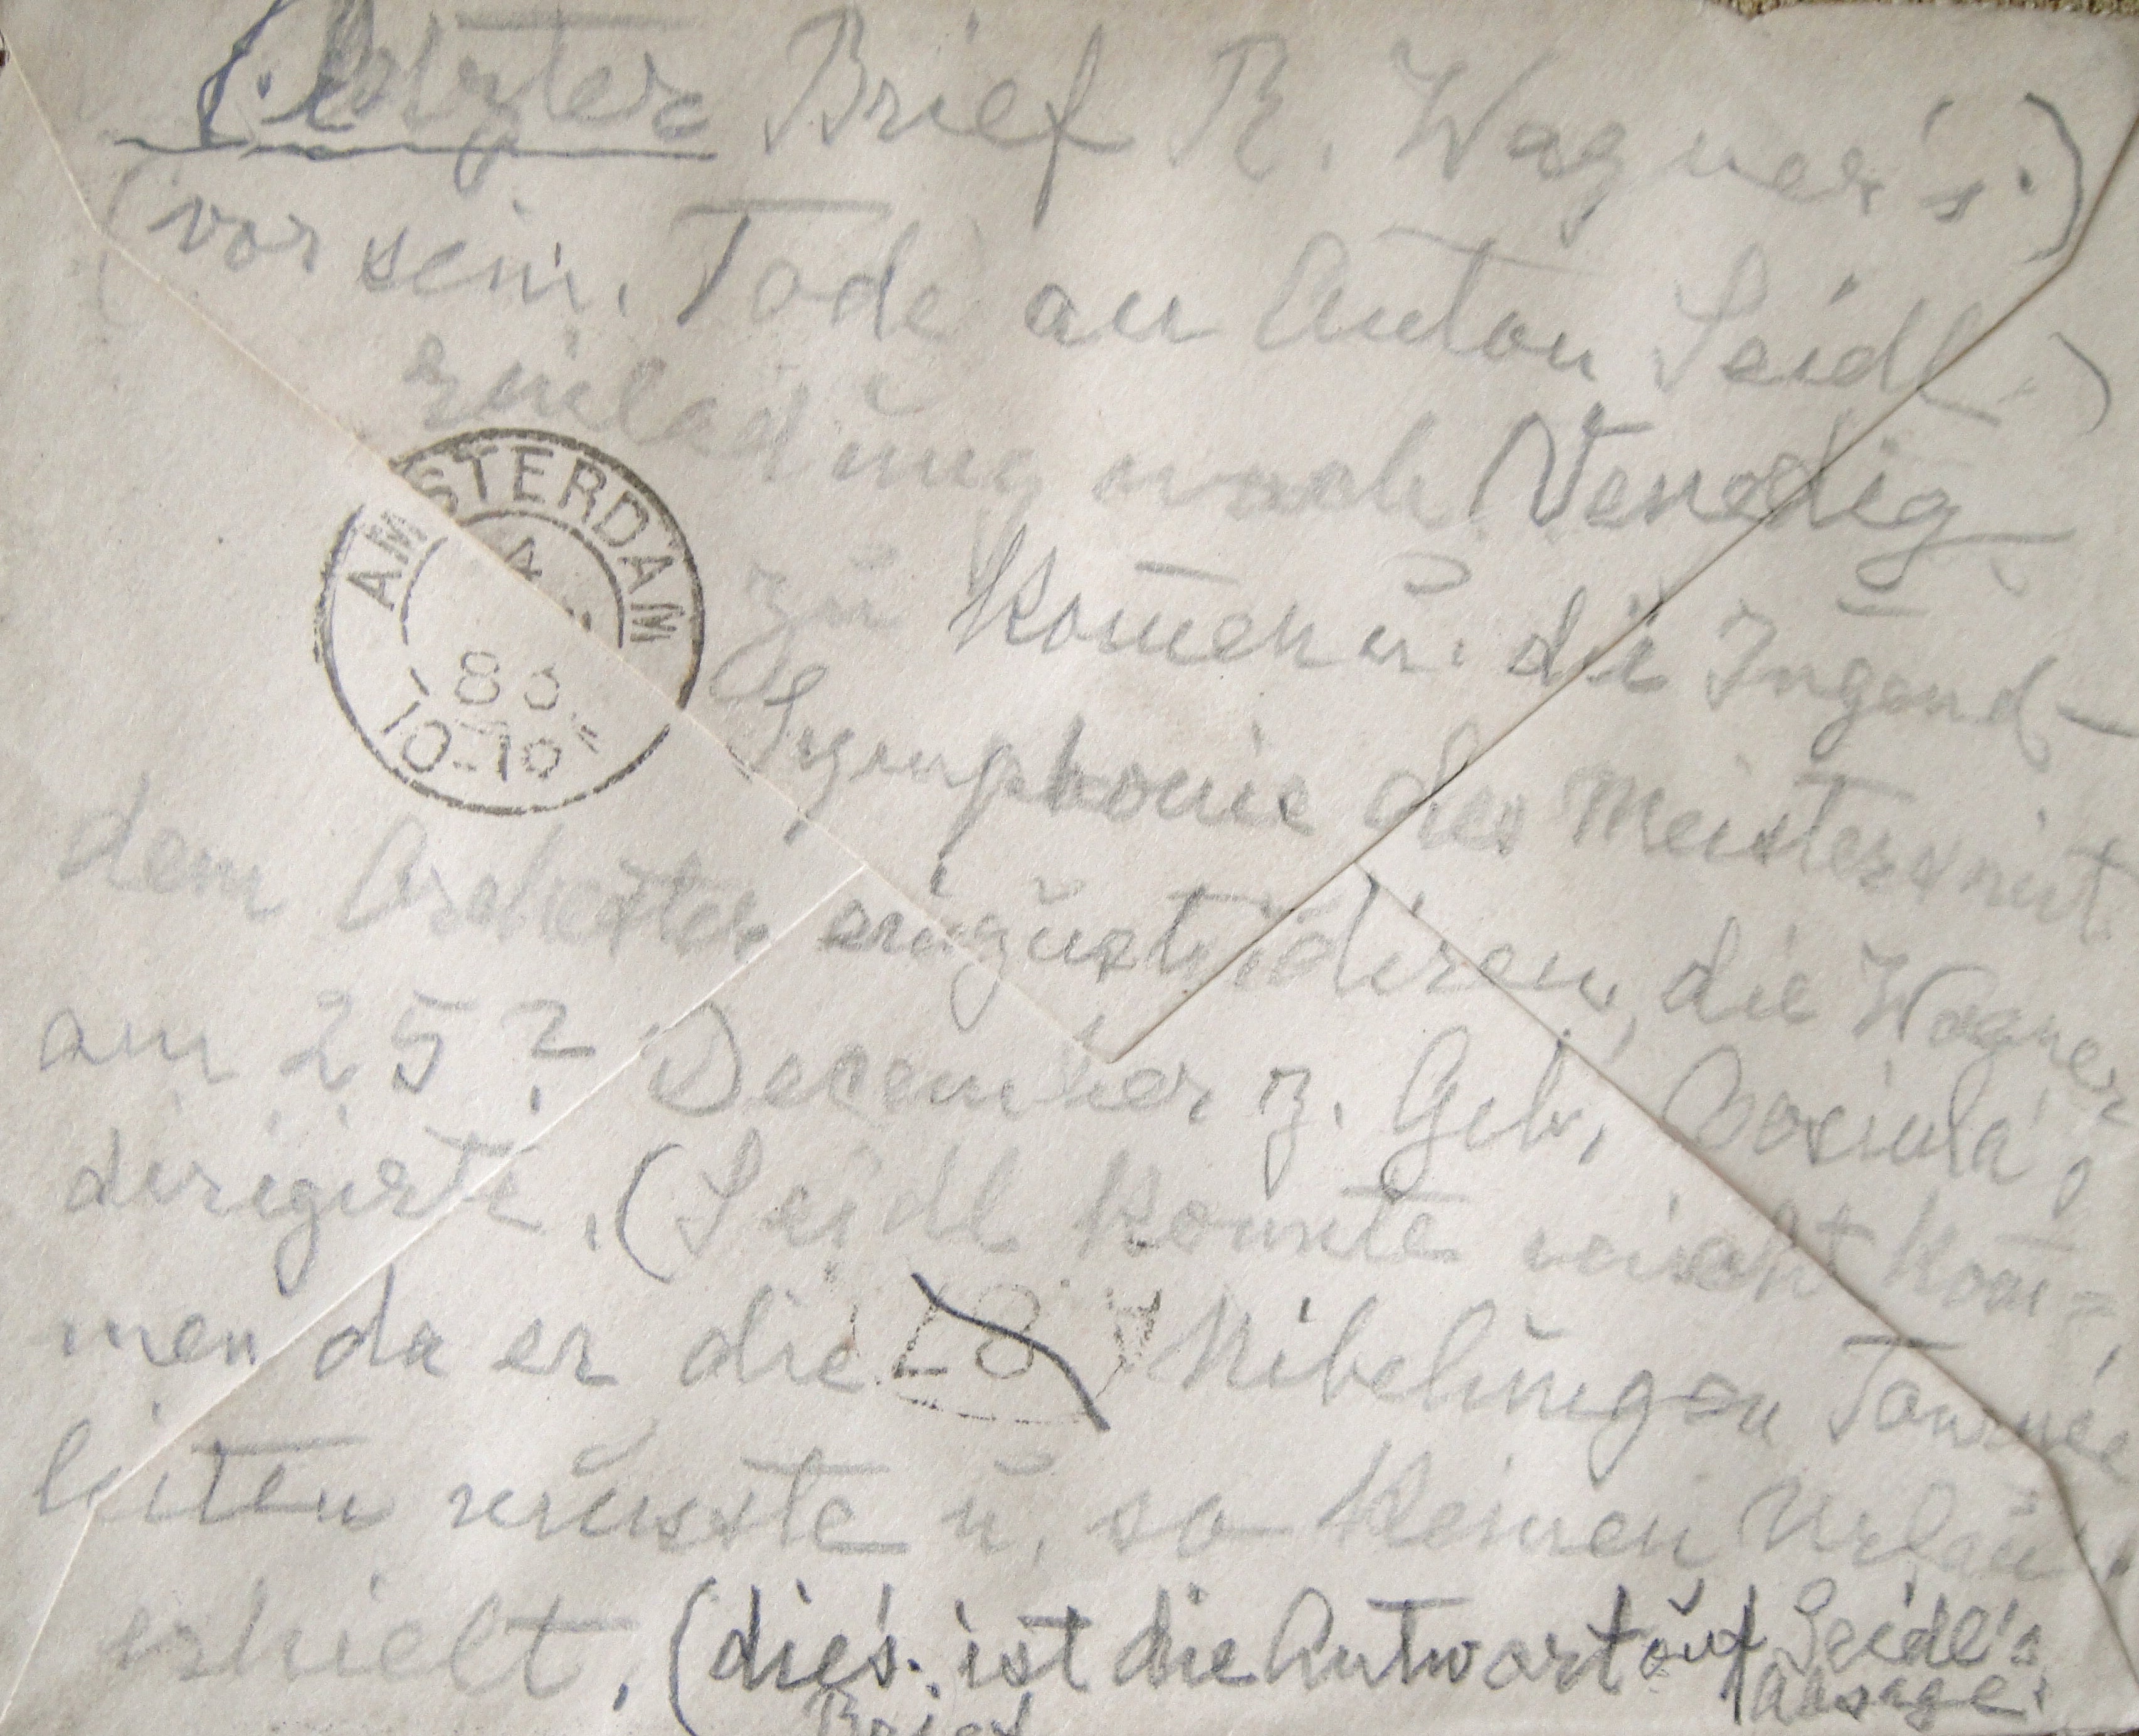 (Letzter Brief R. Wagner's.)
(vor sein. Tode an Anton Seidl.)
Einladung nach Venedig
zu kom̄en u. die Jugend-
Symphonie des Meisters mit
dem Orchester einzustudiren, die Wagner
am 25? December z. Geb. Cosima's
dirigirte. (Seidl konnte nicht kom-
men da er die Nibelungen Tournée
leiten müsste u. so keinen Urlaub
erhielt. (dies. ist die Antwort auf Seidl's
Brief Absage.
AMSTERDAM
4
83
10-12
87